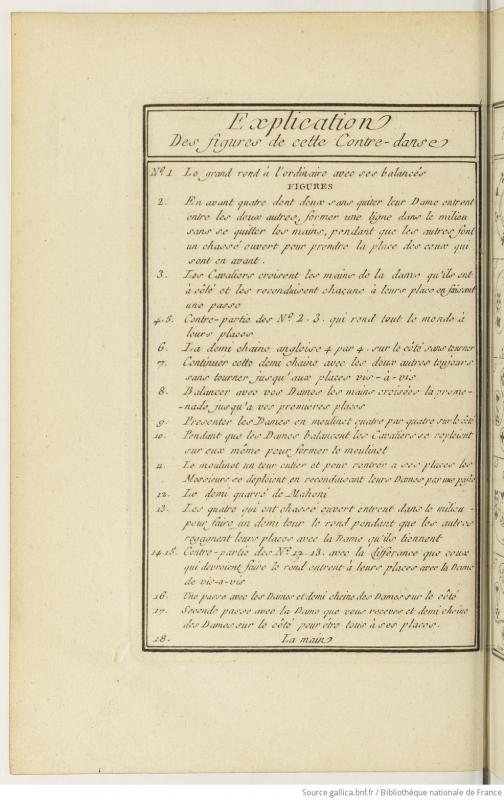 Explication
Des figures de cette Contre-danse
Nº. 1 Le grand rond à l'ordinaire avec ses balancés
FIGURES
2. En avant quatre dont deux sans quiter leur Dame entrent
entre les deux autres, former une ligne dans le milieu
sans se quitter les mains, pendant que les autres font
un chassé ouvert pour prendre la place des ceux qui
sont en avant.
3. Les Cavaliers croisent les mains de la dame qu'ils ont
à côté et les reconduisent chacune à leurs place en faisant
une passe
4.5. Contre-partie des Nº. 2.3. qui rend tout le monde à
leurs places
6. La demi chaine angloise 4 par 4. sur le côté sans tourner
7. Continuer cette demi chaine avec les deux autres toujours
sans tourner jusqu'aux places vis-à-vis
8. Balancer avec vos Dames les mains croisées la prome-
-nade jusqu'a vos premieres places
9. Presenter les Dames en moulinet quatre par quatre sur le côté
10. Pendant que les Dames balancent les Cavaliers se reploient
sur eux même pour former le moulinet
11. Le moulinet un tour entier et pour rentrer a ses places les
Messieurs se deploient en reconduisant leurs Dames par une passe
12. Le demi quarré de Mahoni
13. Les quatre qui ont chasse ouvert entrent dans le milieu -
pour faire un demi tour le rond pendant que les autres
regagnent leurs places avec la Dame qu'ils tiennent
14.15. Contre-partie des Nº. 12.13. avec la differance que ceux
qui devroient faire le rond entrent à leurs places avec la Dame
de vis-a-vis
16. Une passe avec les Dames et demi chaine des Dames sur le côté
17. Seconde passe avec la Dame que vous recevez et demi chaine
des Dames sur le côté pour être tous à ses places.
18. La main
Source gallica.bnf.fr / Bibliothèque nationale de France